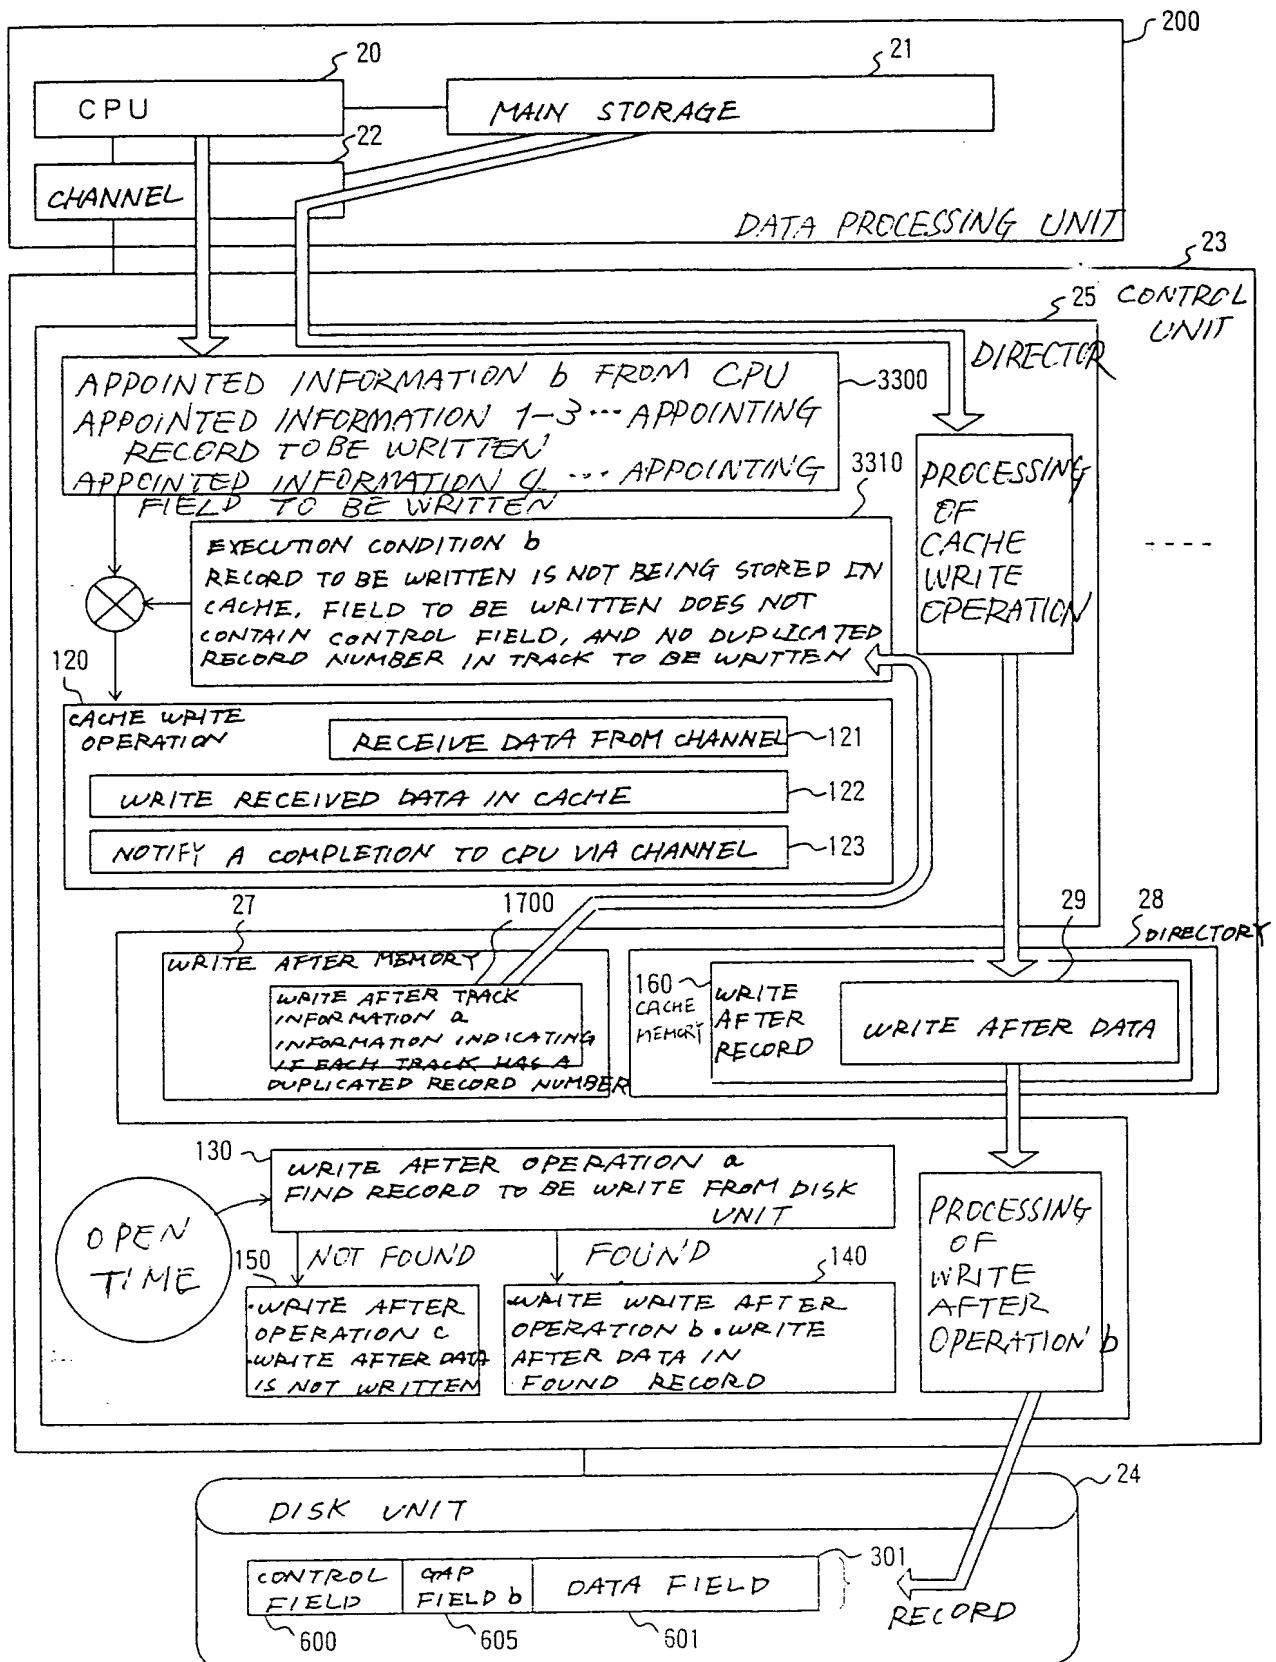 200
20
21
CPU
MAIN STORAGE
22
CHANNEL
DATA PROCESSING UNIT
23
25
CONTROL
UNIT
DIRECTOR
APPOINTED INFORMATION b FROM CPU
APPOINTED INFORMATION 1-3... APPOINTING
RECORD TO BE WRITTEN
APPOINTED INFORMATION 4 ... APPOINTING
FIELD TO BE WRITTEN
3300
3310
PROCESSING
OF
CACHE
WRITE
OPERATION
EXECUTION CONDITION b
RECORD TO BE WRITTEN IS NOT BEING STORED IN
CACHE, FIELD TO BE WRITTEN DOES NOT
CONTAIN CONTROL FIELD, AND NO DUPLICATED
RECORD NUMBER IN TRACK TO BE WRITTEN
120
CACHE WRITE
OPERATION
RECEIVE DATA FROM CHANNEL
121
WRITE RECEIVED DATA IN CACHE
122
NOTIFY A COMPLETION TO CPU VIA CHANNEL
123
27
1700
29
28
DIRECTORY
WRITE AFTER MEMORY
WRITE AFTER TRACK
INFORMATION a
INFORMATION INDICATING
IF EACH TRACK HAS A
DUPLICATED RECORD NUMBER
160
CACHE
MEMORY
WRITE
AFTER
RECORD
WRITE AFTER DATA
130
WRITE AFTER OPERATION a
FIND RECORD TO BE WRITE FROM DISK
UNIT
OPEN
TIME
NOT FOUND
FOUND
150
140
·WRITE AFTER
OPERATION c
·WRITE AFTER DATA
IS NOT WRITTEN
·WRITE WRITE AFTER
OPERATION b·WRITE
AFTER DATA IN
FOUND RECORD
PROCESSING
OF
WRITE
AFTER
OPERATION b
24
DISK UNIT
301
CONTROL
FIELD
GAP
FIELD b
DATA FIELD
RECORD
600
605
601